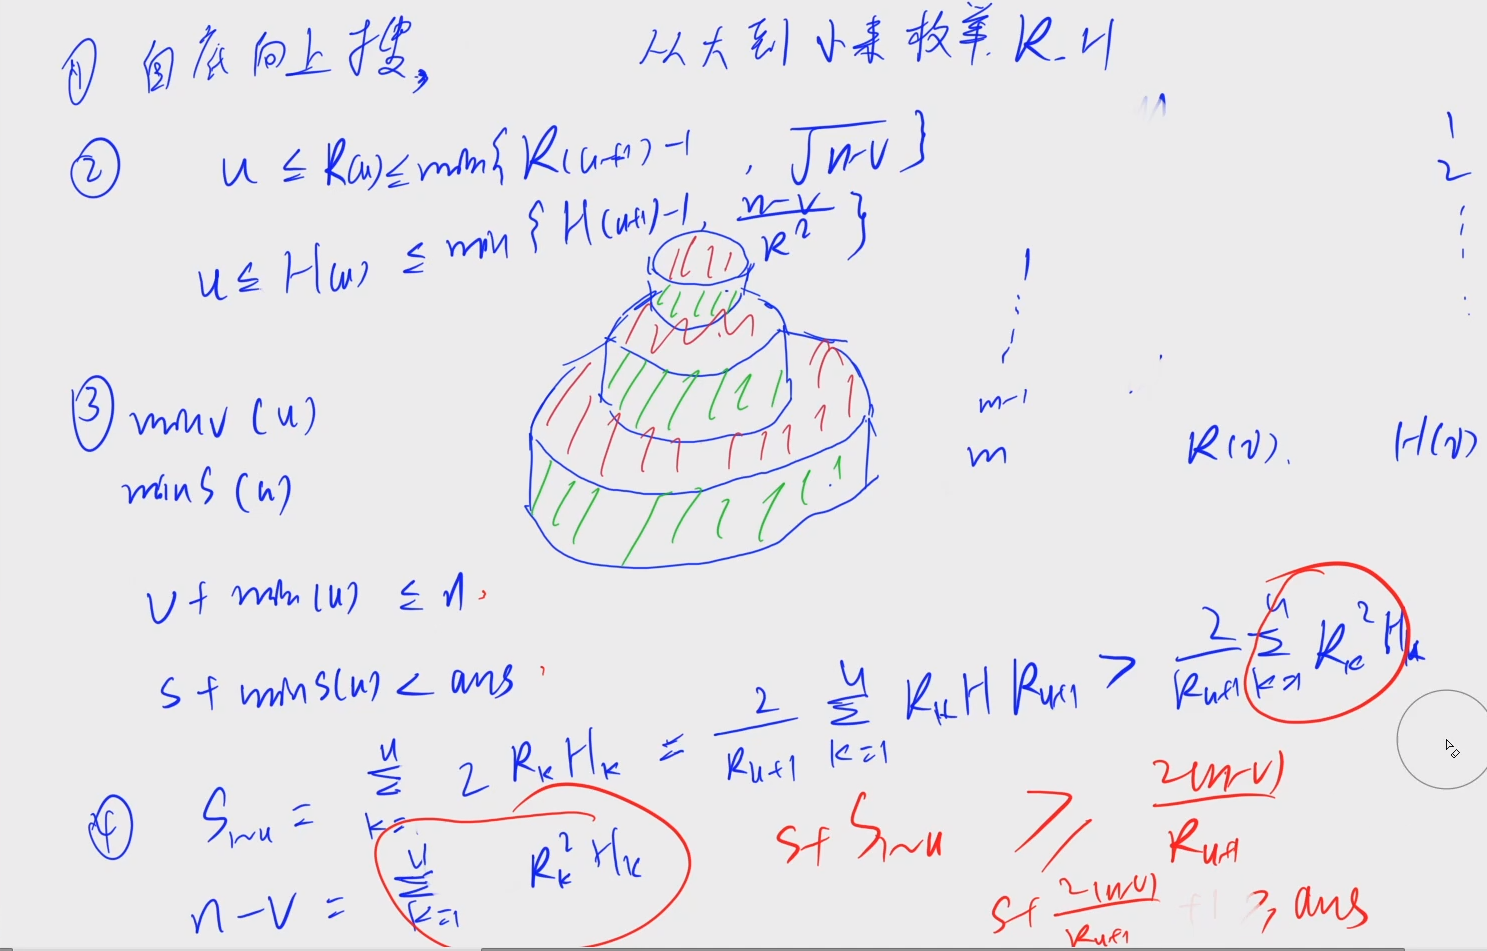 ① 自底向上搜, 从大到小来枚举 R.H
② u ≤ R(u) ≤ min{ R(u+1)-1 , √n-v }
u ≤ H(u) ≤ min { H(u+1)-1, n-v / R² }
1
2
1
m-1
m
R(v). H(v)
③ minv (u)
mins (u)
v + min(u) ≤ n.
s + mins(u) < ans.
④ S₁~u = Σ(k=1, u) 2 R_k H_k = 2/R_u+1 Σ(k=1, u) R_k H R_u+1 > 2/R_u+1 Σ(k=1, u) R_k² H_k
n-v = Σ(k=1, u) R_k² H_k
s+ S₁~u ≥ 2(n-v) / R_u+1
s+ 2(n-v) / R_u+1 ≥ ans